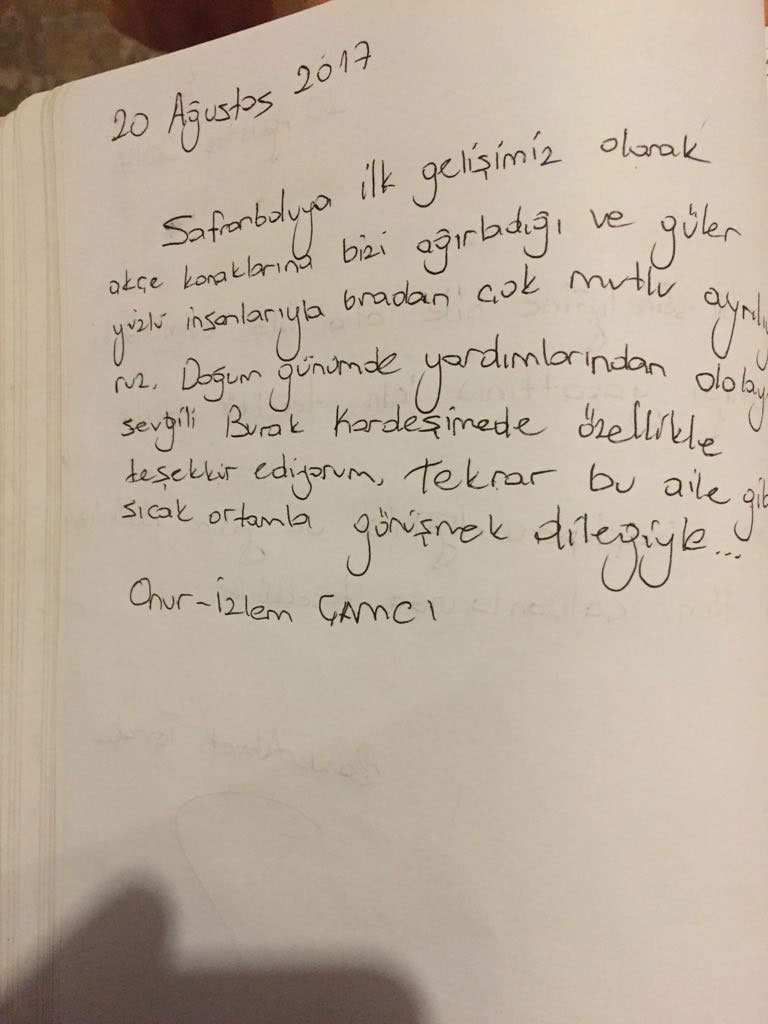 20 Ağustos 2017
Safranboluya ilk gelişimiz olarak
akçe konaklarına bizi ağırladığı ve güler
yüzlü insanlarıyla bradan çok mutlu ayrılıy
ruz. Doğum günümde yardımlarından ololay
sevgili Burak Kardeşimede özellikle
teşekkür ediyorum, tekrar bu aile gib
sıcak ortamla görüşmek dileğiyle...
Onur-İzlem ÇAMCI